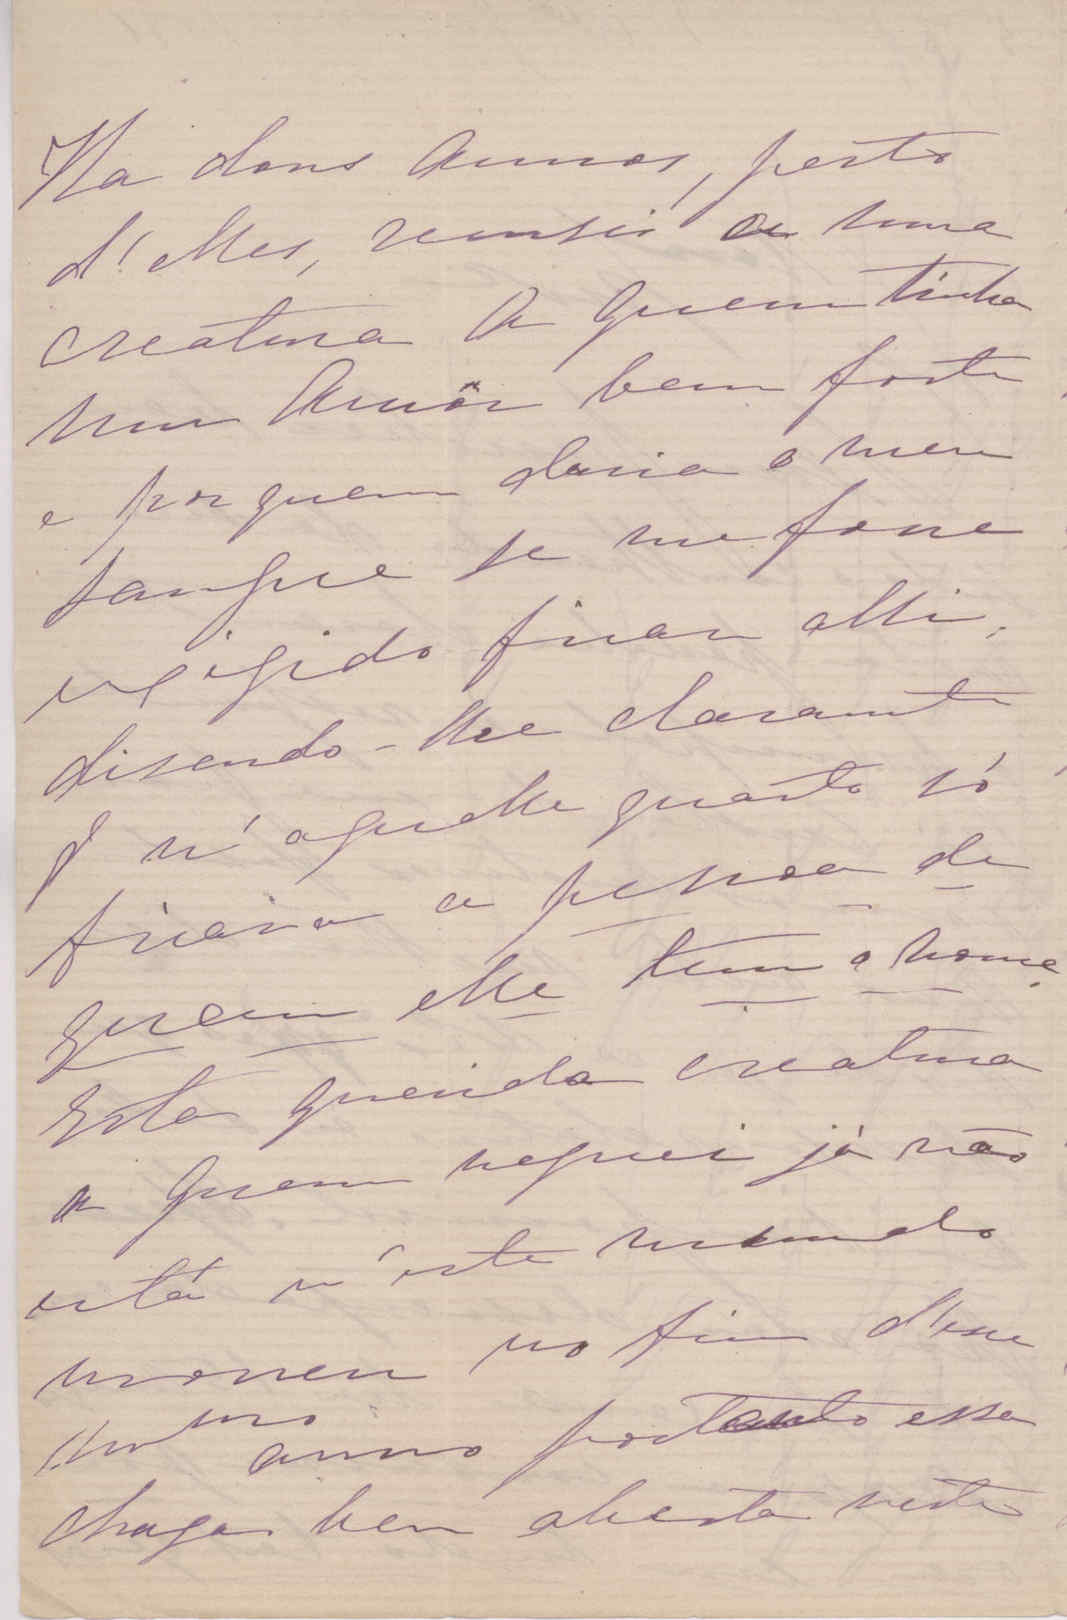 Ha dous annos, perto
d'elles, reunsei a uma
creatura a quem tinha
um Amôr bem forte
e por quem daria o meu
sangue se me fosse
exigido ficar alli,
disendo-lhe claramente
q n'aquelle quarto só
ficaria a pessoa de
quem elle tem o nome.
Esta querida creatura
a quem neguei já não
está n'este mundo
morreu no fim d'esse
mmo anno portanto essa
chaga bem aberta neste